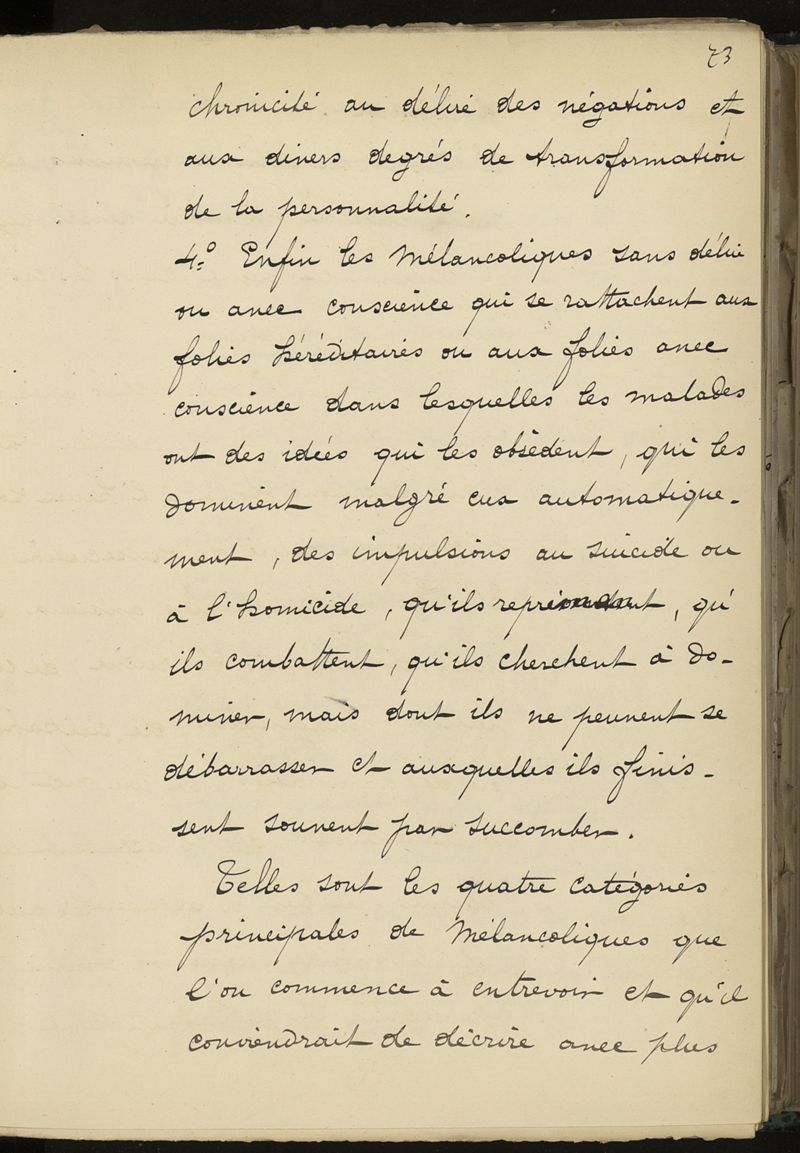 73
chronicité au délire des négations et
aux divers degrés de transformation
de la personnalité.
4.º Enfin les Mélancoliques sans délire
ou avec conscience qui se rattachent aux
folies héréditaires ou aux folies avec
conscience dans lesquelles les malades
ont des idées qui les obsèdent, qui les
dominent malgré eux automatique-
ment, des impulsions au suicide ou
à l'homicide, qu'ils repr, qu'
ils combattent, qu'ils cherchent à do-
miner, mais dont ils ne peuvent se
débarrasser et auxquelles ils finis-
sent souvent par succomber.
Telles sont les quatre catégories
principales de Mélancoliques que
l'on commence à entrevoir et qu'il
conviendrait de décrire avec plus